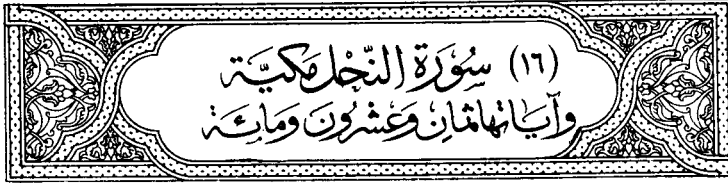 (١٦) سُورَةُ النَّحْلِ مَكِيَّة
وَآيَاتُهَا ثَمَانٍ وَعَشْرُونَ وَمَائَة